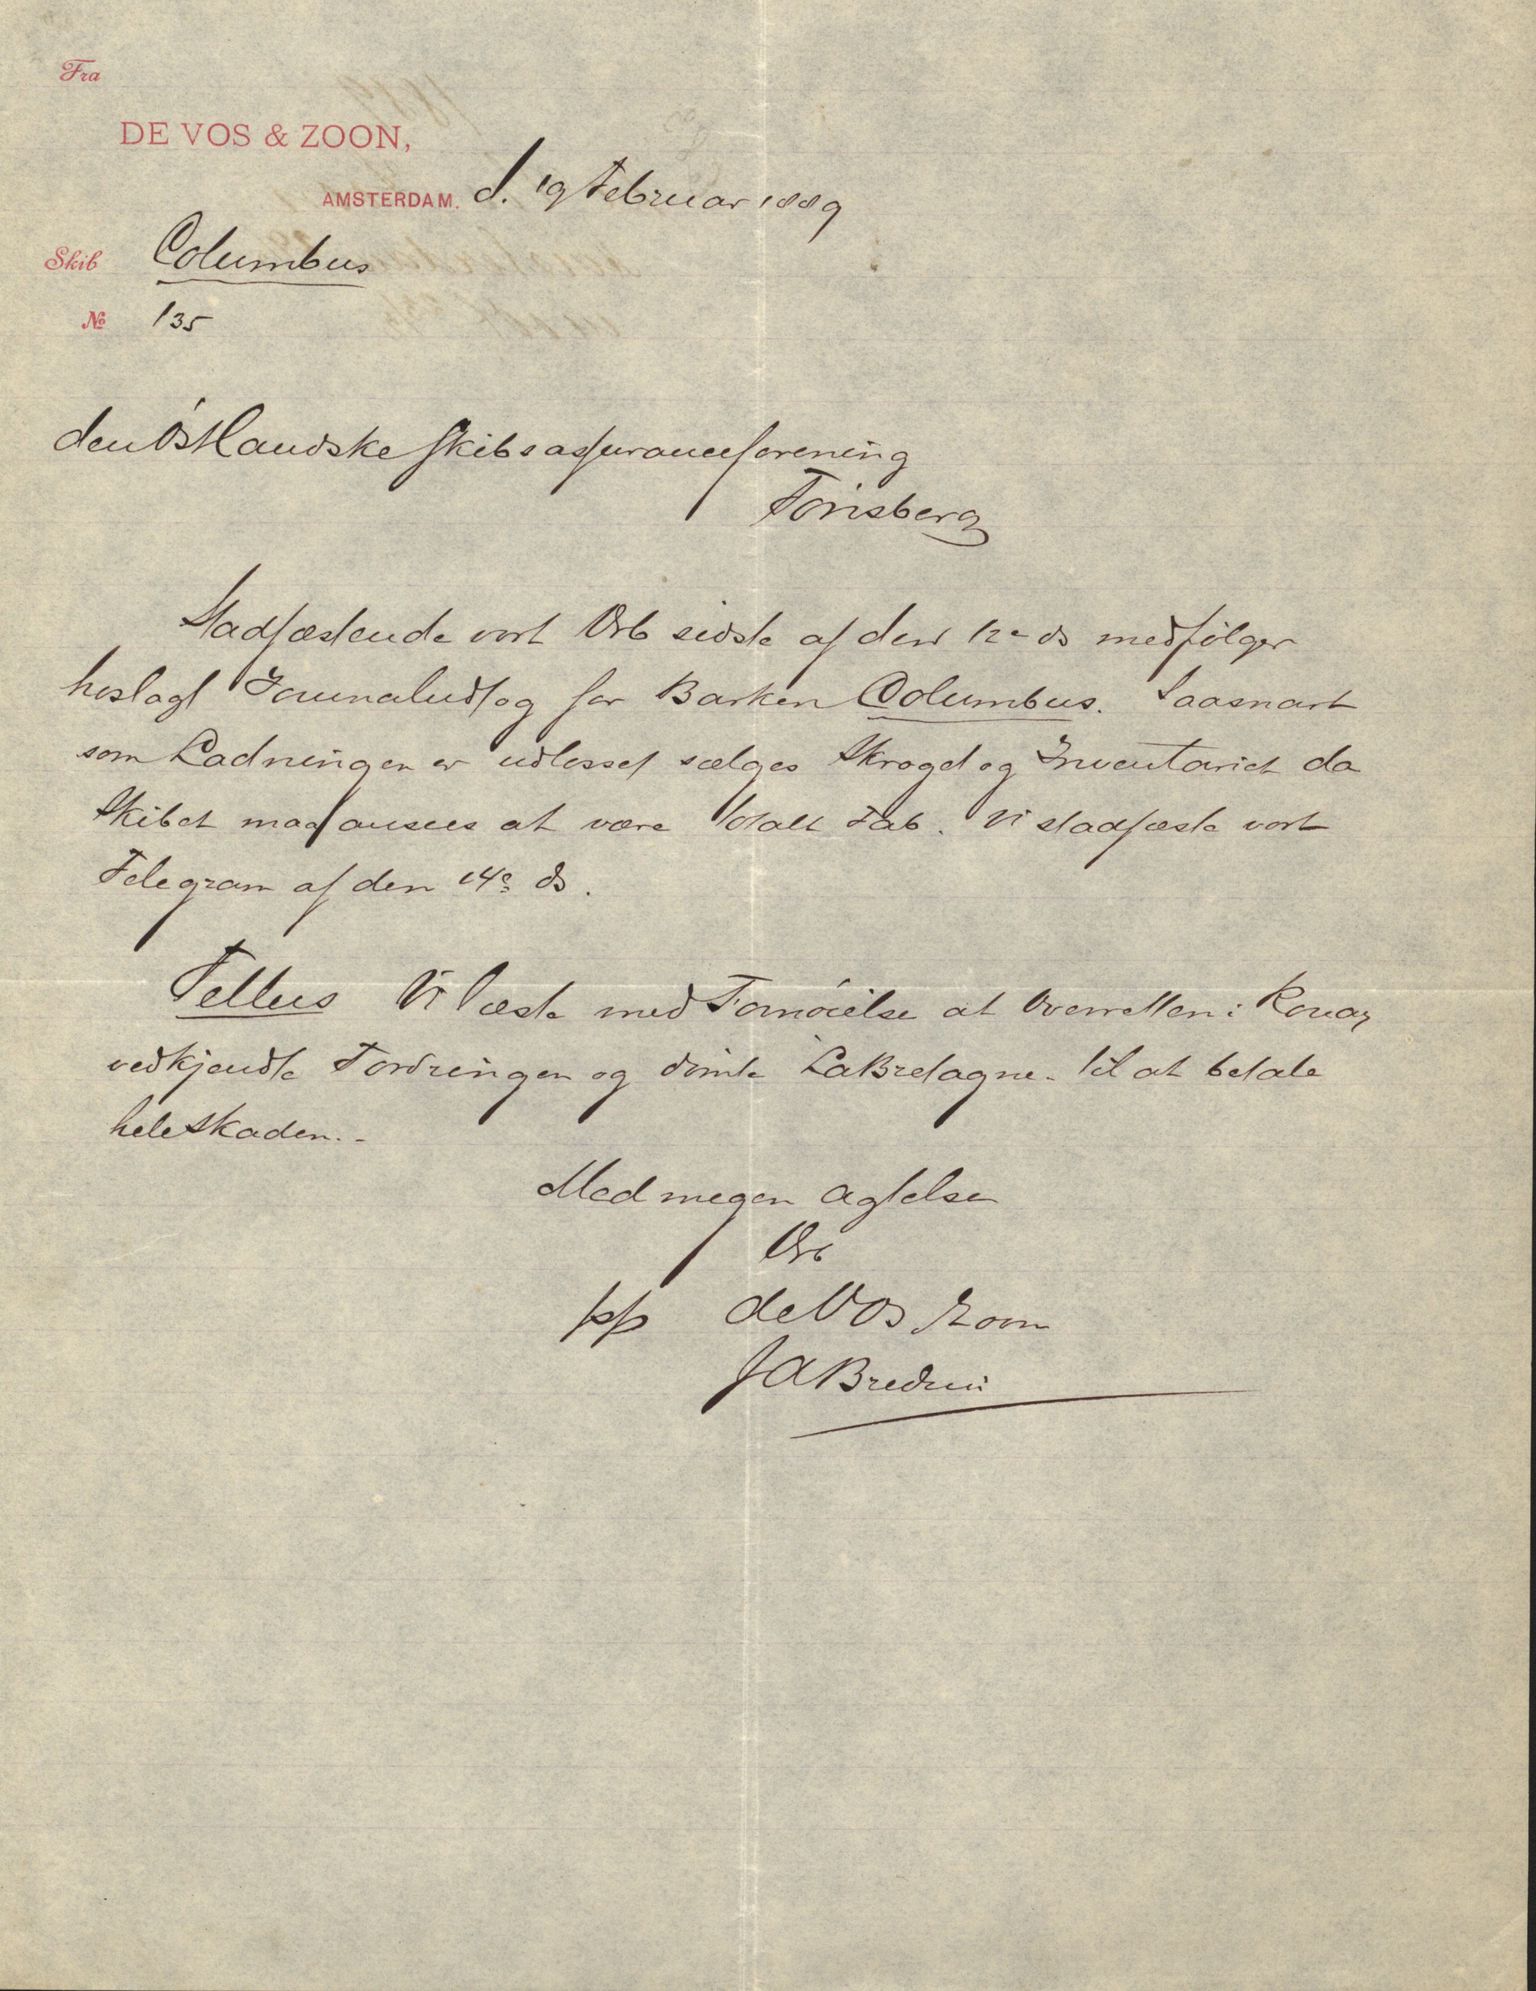 Fra
DE VOS & ZOON,
AMSTERDAM. d. 19 Februar 1889
Skib Columbus
No 135
den Östlandske Skibsassuranceforening
Tönsberg
Stadfæstende vort Erb sidste af den 12e ds medfølger
heslagt Journaludtog for Barken Columbus. Saasnart
som Ladningen er udlosset sælges Skroget og Inventariet da
Skibet maa ansees at være totalt Tab. Vi stadfæste vort
Telegram af den 14e ds.
Tellus Vi læste med Fornöielse at Overretten i Rouen
vedkjendte Fordringen og dömte La Bretagne. til at betale
hele Skaden. -
Med megen Agtelse
Erb
pp de Vos & Zoon
JA